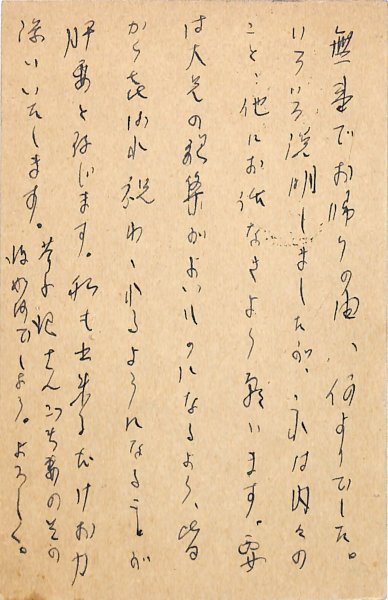 無事でお帰りの由、何よりでした。
いろいろ説明しましたが、これは内々の
こと、他にお話なきよう願います。要
は大兄の結婚がよいものになるよう、皆
から喜ばれ祝われるようになることが
肝要と存じます。私も出来るだけお力
添いいたします。さんのその
でしょう。よろしく。